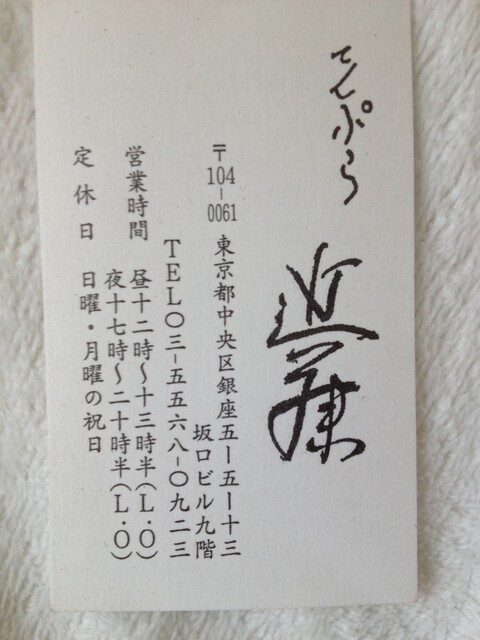 てんぷら
近藤
〒104-0061 東京都中央区銀座五ー五ー十三
坂口ビル九階
TEL〇三-五五六八-〇九二三
営業時間 昼十二時〜十三時半(L.O)
夜十七時〜二十時半(L.O)
定休日 日曜・月曜の祝日